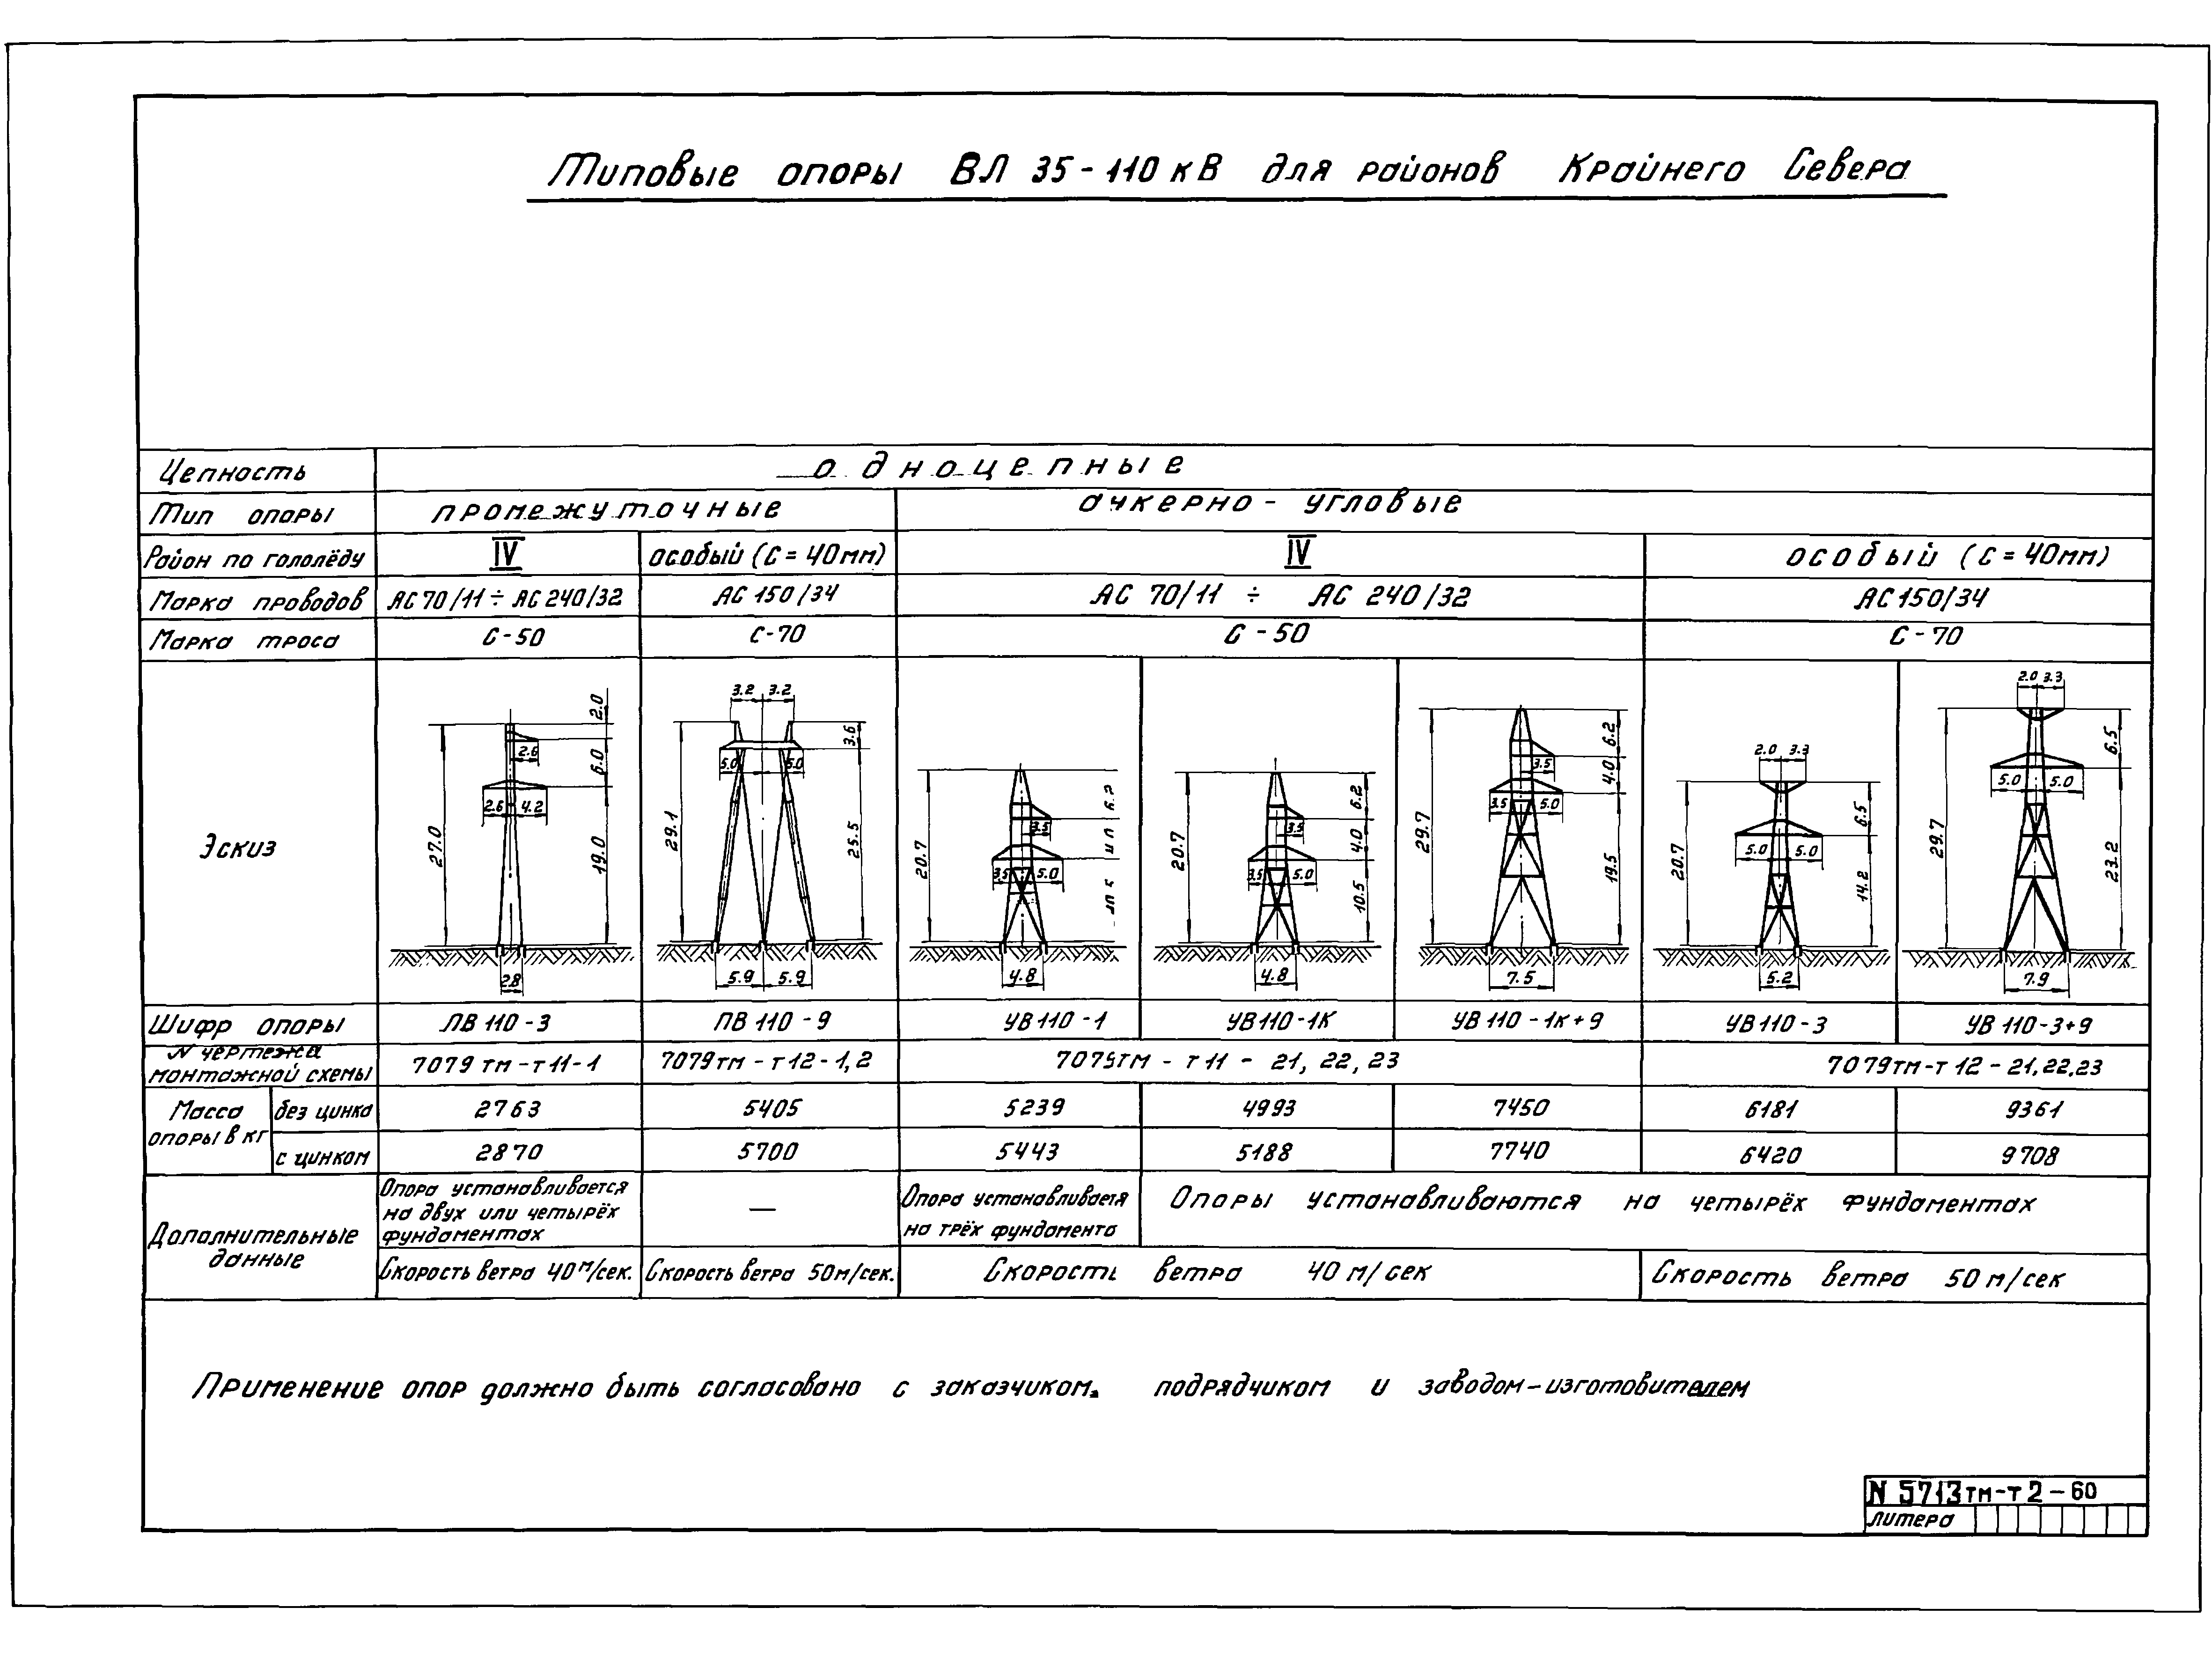 Типовые опоры ВЛ 35-110 кВ для районов Крайнего Севера
Цепность одноцепные
Тип опоры промежуточные анкерно-угловые
Район по гололёду IV особый (С=40мм) IV особый (С=40мм)
Марка проводов АС 70/11 ÷ АС 240/32 АС 150/34 АС 70/11 ÷ АС 240/32 АС 150/34
Марка троса С-50 С-70 С-50 С-70
Эскиз
27.0 2.0 6.0 19.0 2.6 2.6 4.2 2.8
3.2 3.2 29.1 3.6 25.5 5.0 5.0 5.9 5.9
20.7 6.2 3.5 3.5 5.0 4.8
20.7 6.2 4.0 10.5 3.5 3.5 5.0 4.8
29.7 6.2 4.0 19.5 3.5 3.5 5.0 7.5
2.0 3.3 20.7 6.5 14.2 5.0 5.0 5.2
2.0 3.3 29.7 6.5 23.2 5.0 5.0 7.9
Шифр опоры ПВ 110-3 ПВ 110-9 УВ 110-1 УВ110-1К УВ 110-1К+9 УВ 110-3 УВ 110-3+9
N чертежа
монтажной схемы 7079 тм-т11-1 7079тм-т12-1,2 7079тм-т11-21, 22, 23 7079тм-т12-21,22,23
Масса
опоры в кг
без цинка 2763 5405 5239 4993 7450 6181 9361
с цинком 2870 5700 5443 5188 7740 6420 9708
Дополнительные
данные
Опора устанавливается
на двух или четырёх
фундаментах
—
Опора устанавливаетя
на трёх фундамента
Опоры устанавливаются на четырёх фундаментах
Скорость ветра 40м/сек. Скорость ветра 50м/сек. Скорость ветра 40 м/сек Скорость ветра 50 м/сек
Применение опор должно быть согласовано с заказчиком, подрядчиком и заводом-изготовителем
N 5713тм-т2-60
Литера